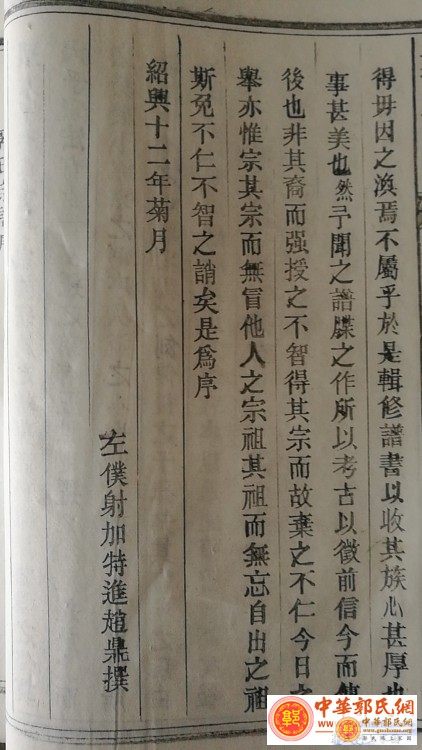 得毋因之渙焉不屬乎於是輯修譜書以收其族心甚厚也
事甚美也然予聞之譜牒之作所以考古以徵前信今而傳
後也非其裔而强授之不智得其宗而故棄之不仁今日之
舉亦惟宗其宗而無冒他人之宗祖其祖而無忘自出之祖
斯免不仁不智之誚矣是爲序
紹興十二年菊月
左僕射加特進趙鼎撰
中華郭氏網
中華郭氏網
www.guoshome.com